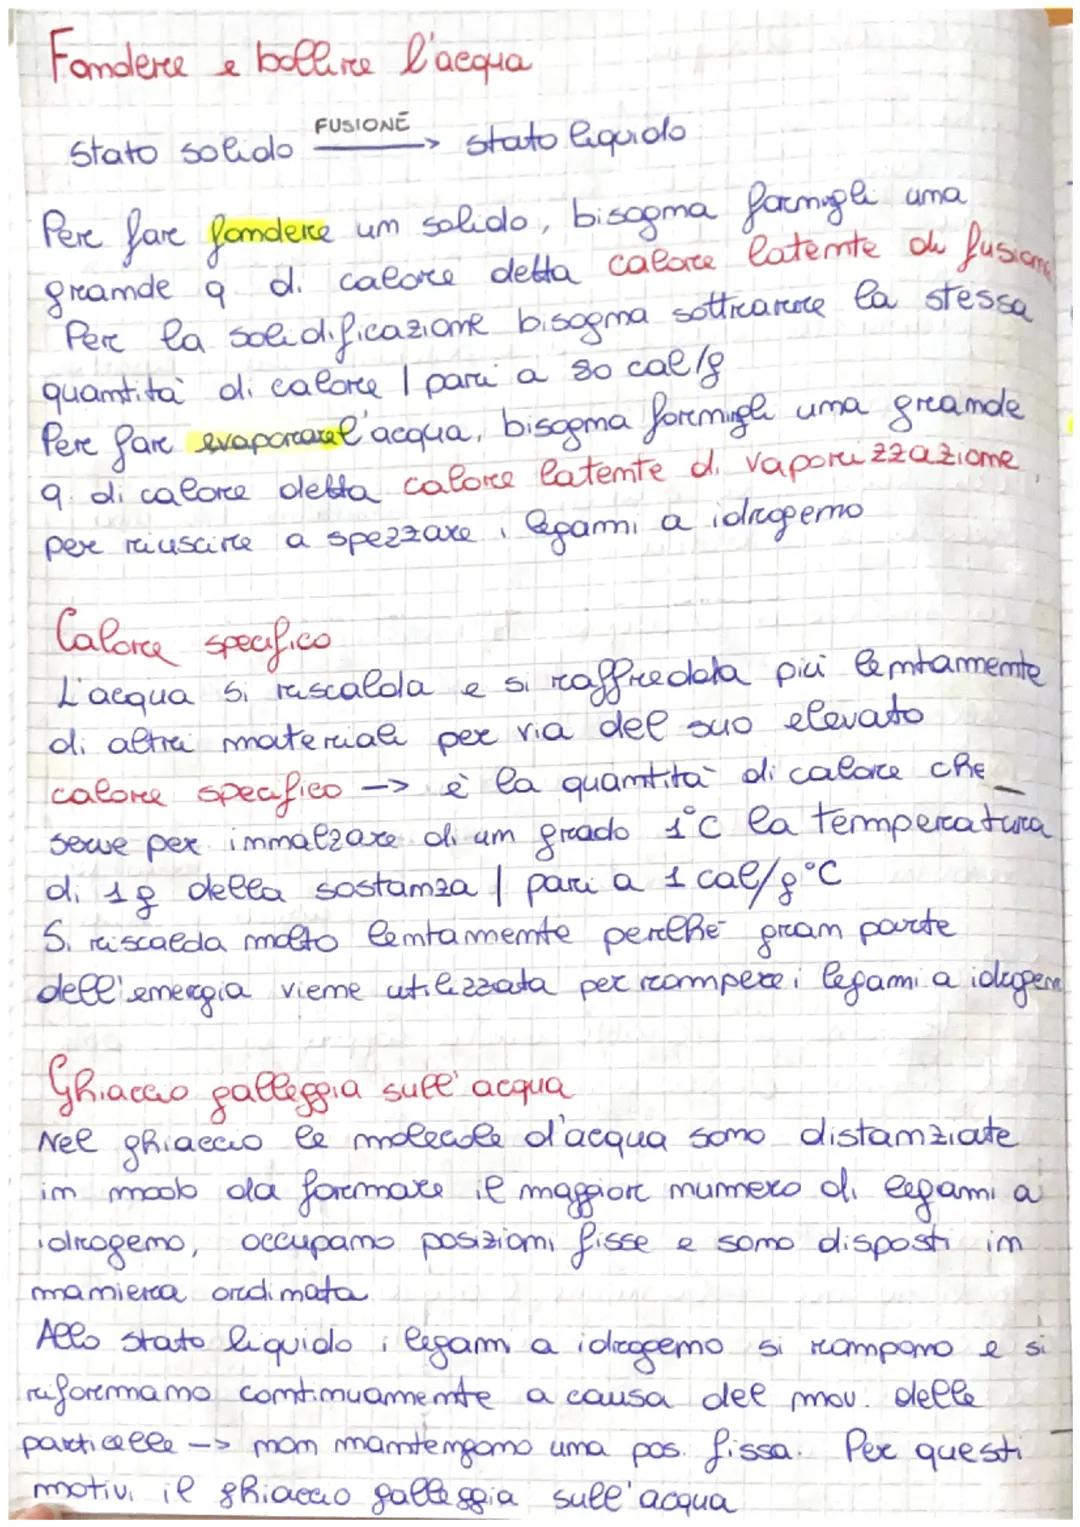 Fondere e bollire l'acqua
Stato solido FUSIONE → stato liquido
Per fare fondere un solido, bisogna fornirgli una
grande q di calore detta calore latente di fusione
Per la solidificazione bisogna sottrarre la stessa
quantità di calore | pari a 80 cal/g
Per fare evaporare l'acqua, bisogna fornirgli una grande
q. di calore detta calore latente di vaporizzazione,
per riuscire a spezzare i legami a idrogeno
Calore specifico
L'acqua si riscalda e si raffredda più lentamente
di altri materiali per via del suo elevato
calore specifico --> è la quantità di calore che
serve per innalzare di un grado 1°C la temperatura
di 1g della sostanza | pari a 1 cal/g°C
Si riscalda molto lentamente perché gran parte
dell'energia viene utilizzata per rompere i legami a idrogeno
Ghiaccio galleggia sull'acqua
Nel ghiaccio le molecole d'acqua sono distanziate
in modo da formare il maggior numero di legami a
idrogeno, occupano posizioni fisse e sono disposti in
maniera ordinata
Allo stato liquido i legami a idrogeno si rompono e si
riformano continuamente a causa del mov. delle
particelle --> non mantengono una pos. fissa. Per questi
motivi il ghiaccio galleggia sull'acqua